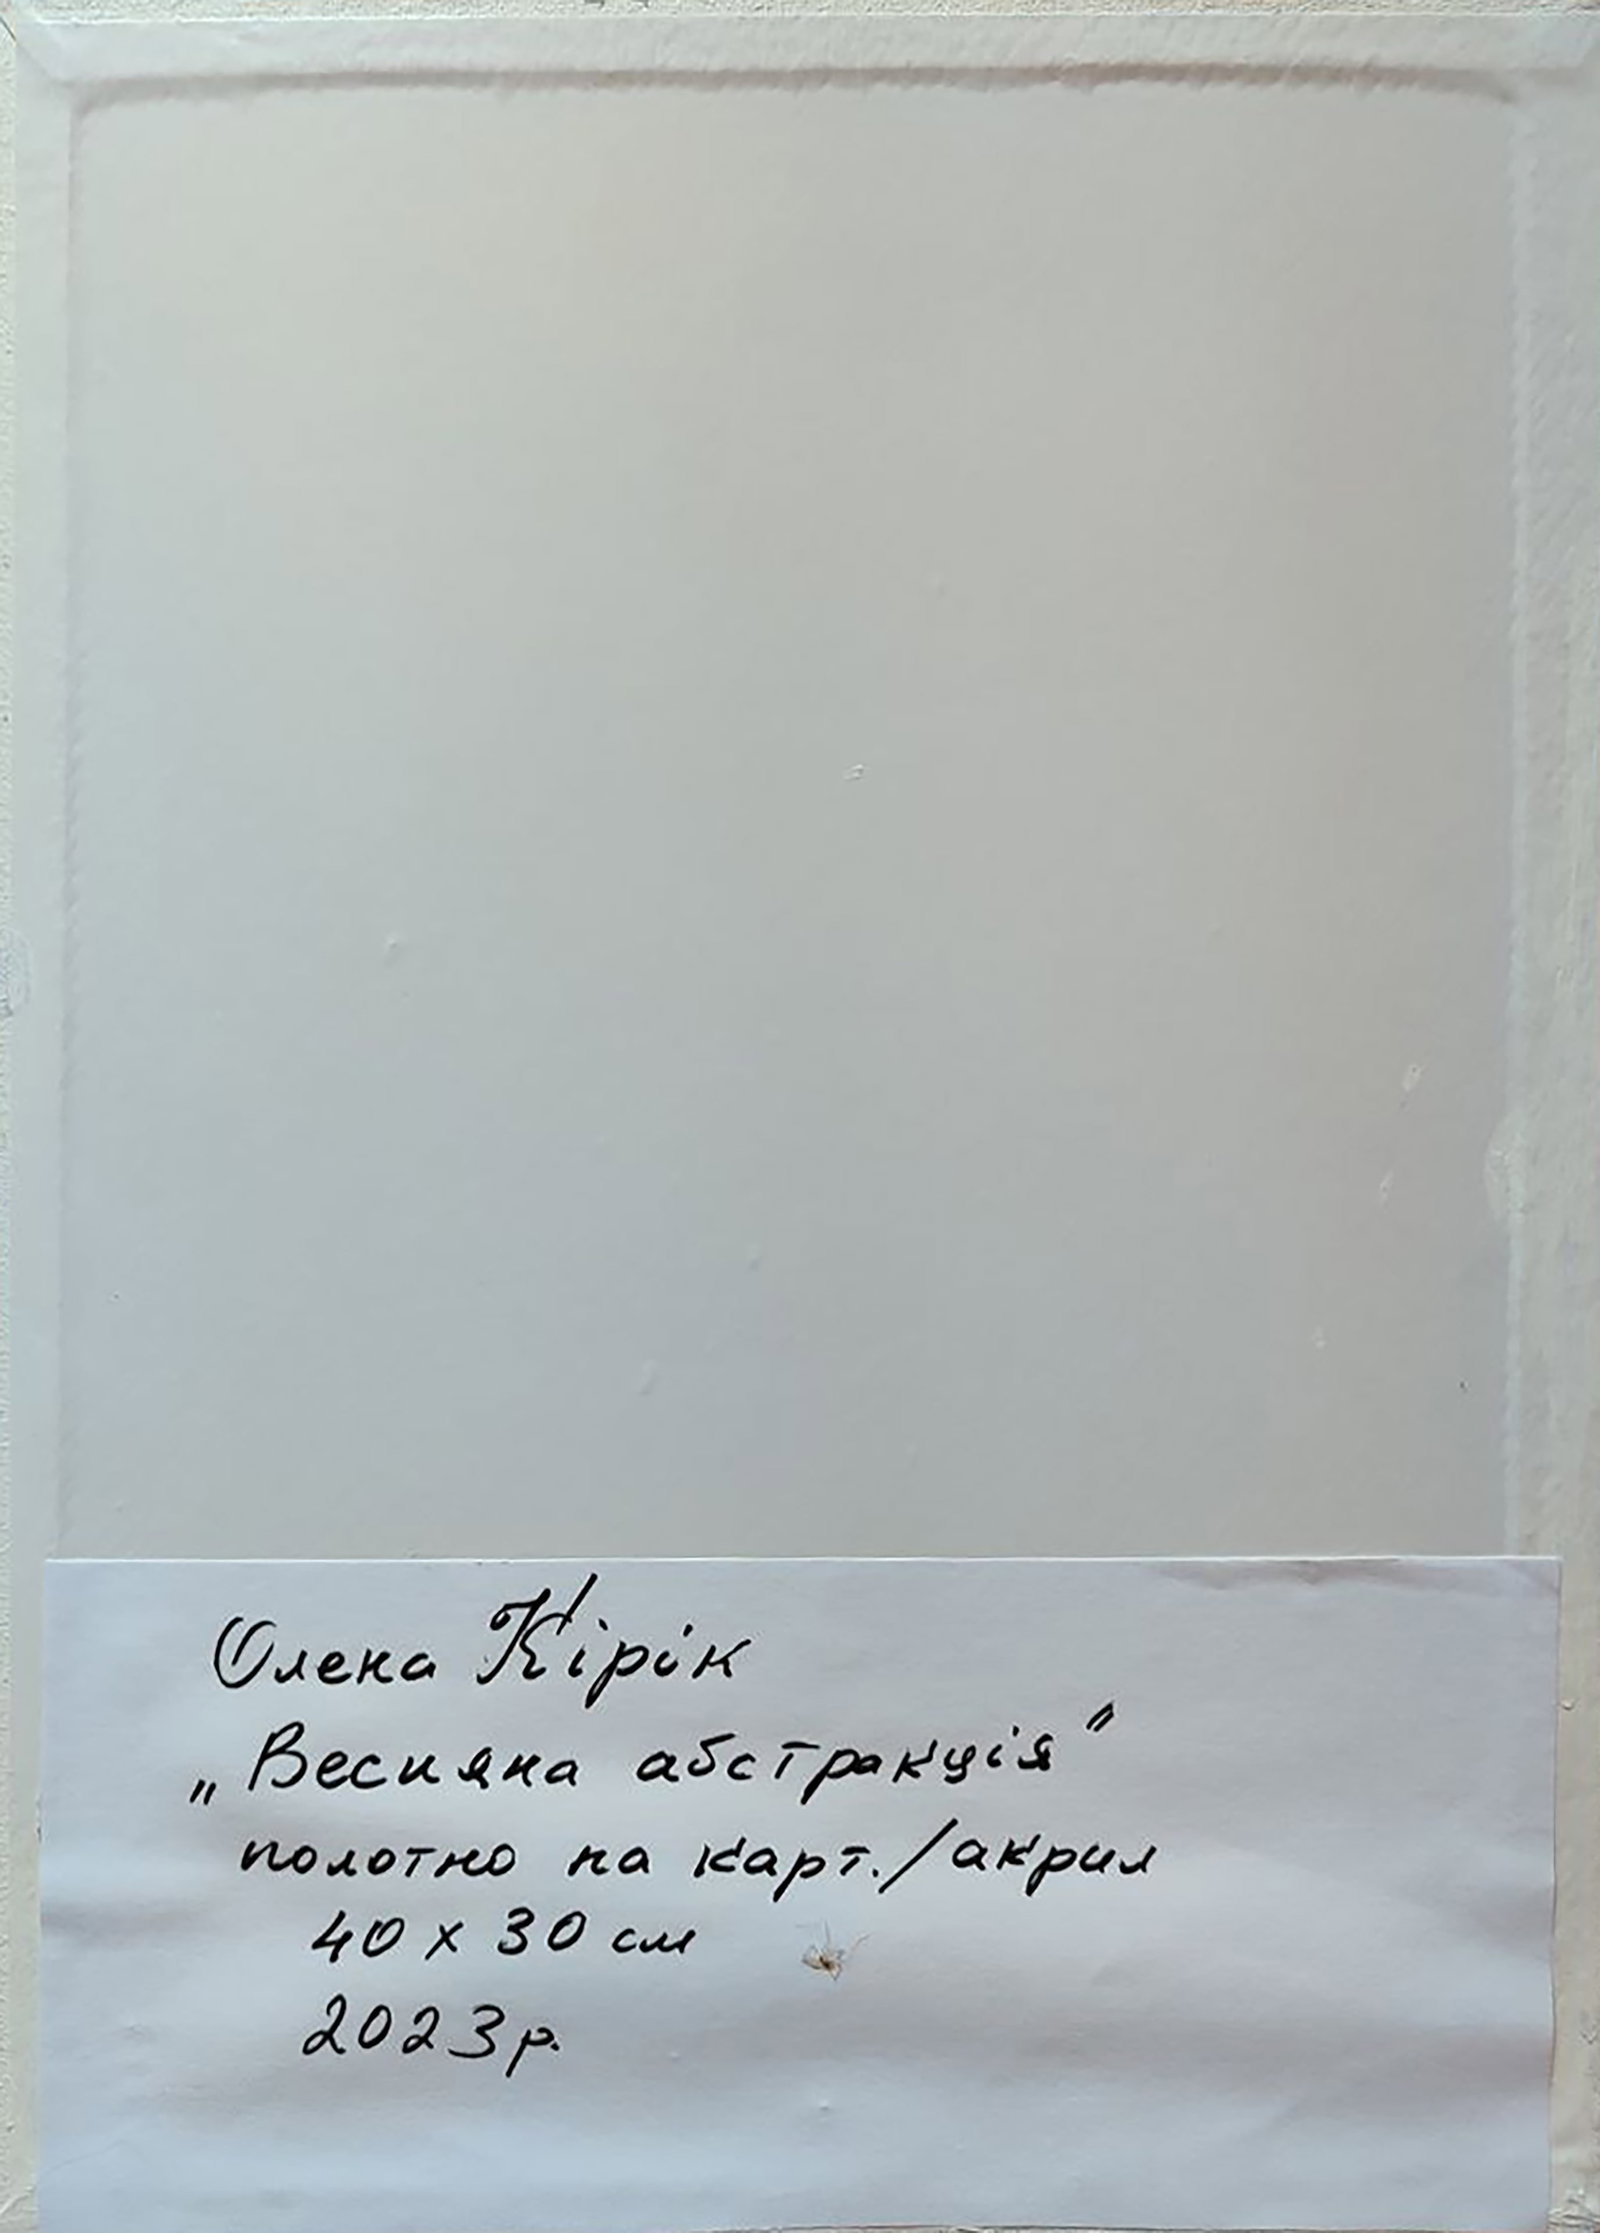 Олена Кірік
„Весняна абстракція"
полотно на карт./акрил
40 х 30 см
2023р.